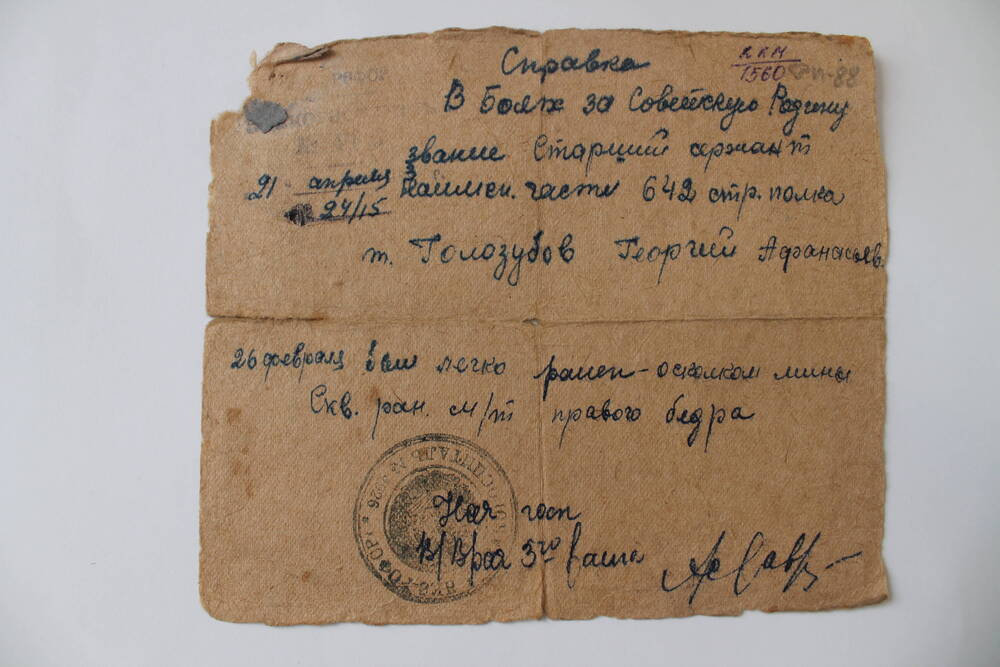 Справка
ККМ
1560
вп-88
В Боях за Советскую Родину
звание Старший сржант
21 апреля Наимен. части 642 стр. полка
24/15
т. Голозубов Георгий Афанасьев.
26 февраля был легко ранен - осколком мины
Скв. ран. м/т правого бедра
Нач госп
В/Врач 3го ранга